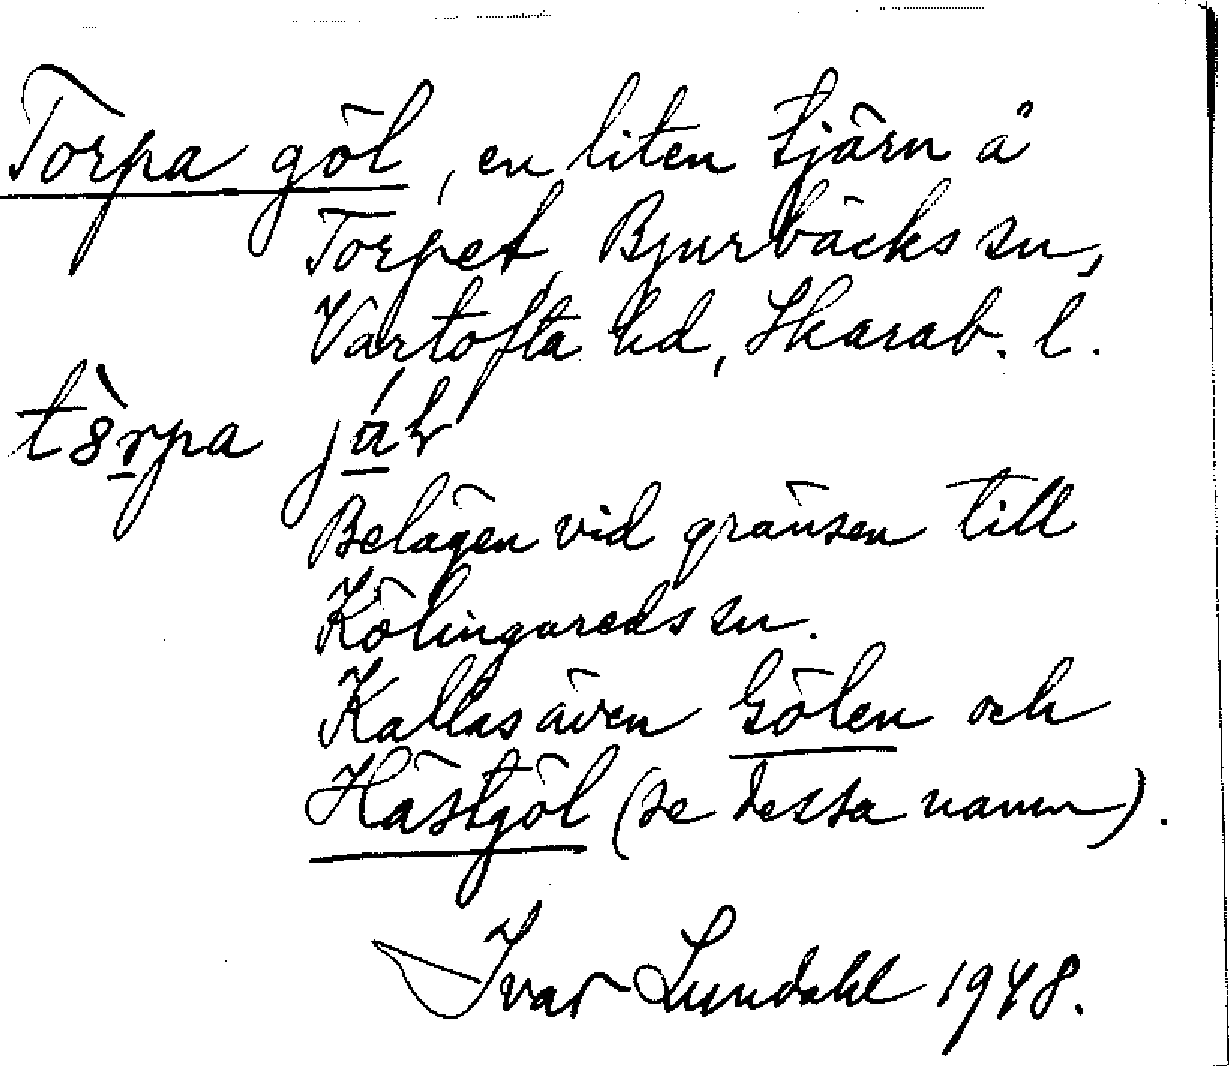 Torpa göl, en liten tjärn å
Torpet, Bjurbäcks sn,
Vartofta hd, Skarab. l.
Belägen vid gränsen till
Kölingareds sn.
Kallas även Gölen och
Hästgöl (se dessa namn).
Ivar Lundahl 1948.